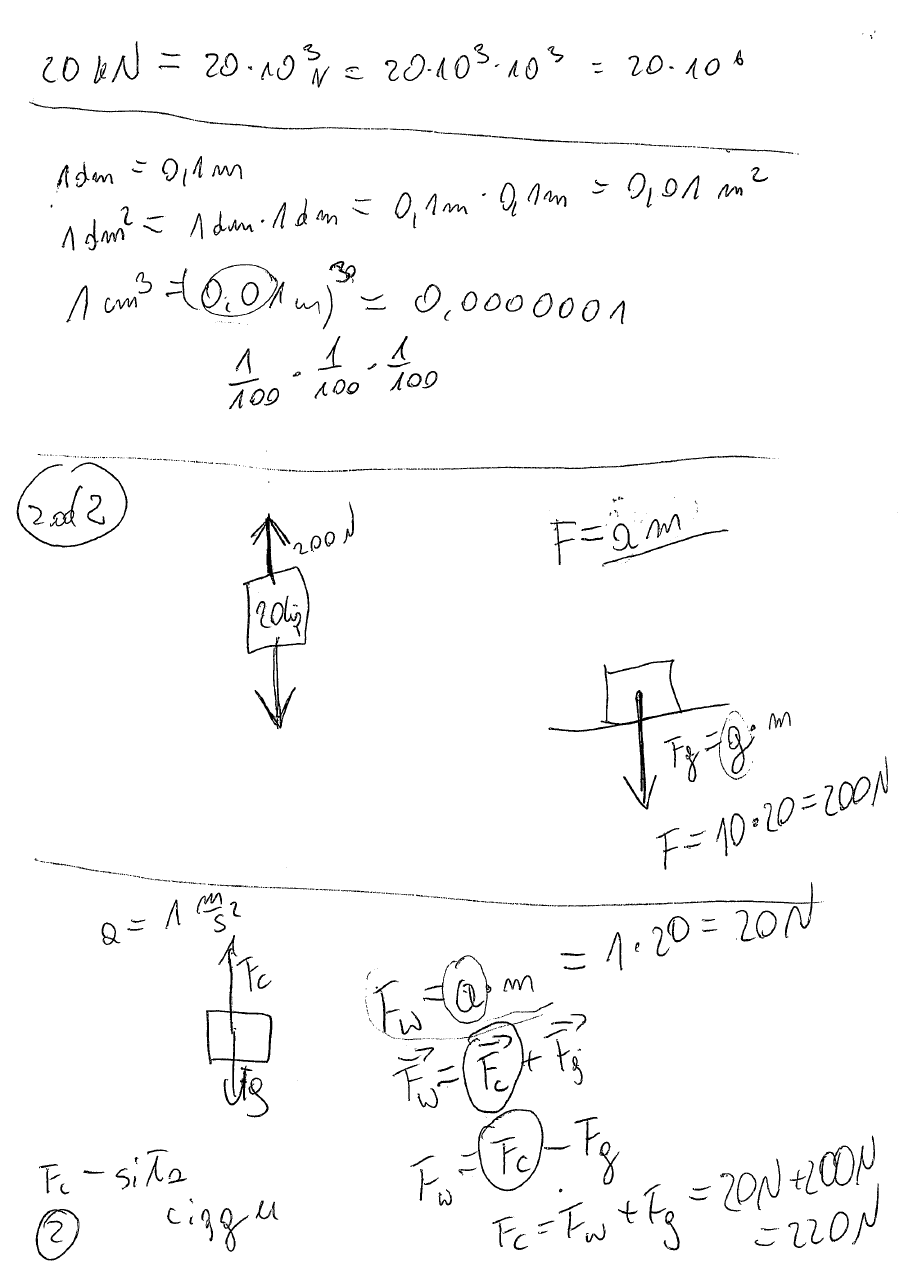 20 kN = 20·10³ N = 20·10³·10³ = 20·10⁶
1dm = 0,1m
1dm² = 1dm·1dm = 0,1m·0,1m = 0,01 m²
1 cm³ = (0,01m)³ = 0,0000001
1/100 · 1/100 · 1/100
2 od 2
200N
20kg
F = a m
Fg = g·m
F = 10·20 = 200N
a = 1 m/s²
Fc
Fg
Fw = a·m = 1·20 = 20N
F⃗w = F⃗c + F⃗g
Fw = Fc - Fg
Fc = Fw + Fg = 20N + 200N
= 220N
Fc - siła
ciągu
2